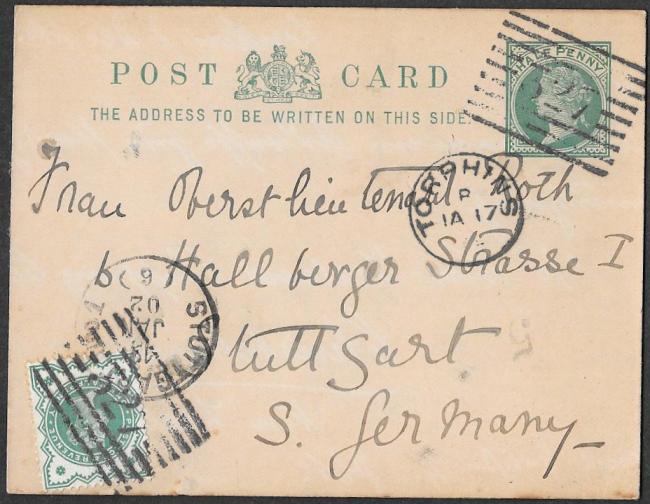 POST CARD
THE ADDRESS TO BE WRITTEN ON THIS SIDE.
HALF PENNY
TORPHINS
P
JA 17
Frau Oberstlieutenant Roth
6 Hallberger Strasse I
Stuttgart
S. Germany
STUTTGART
JA
20
REVENUE